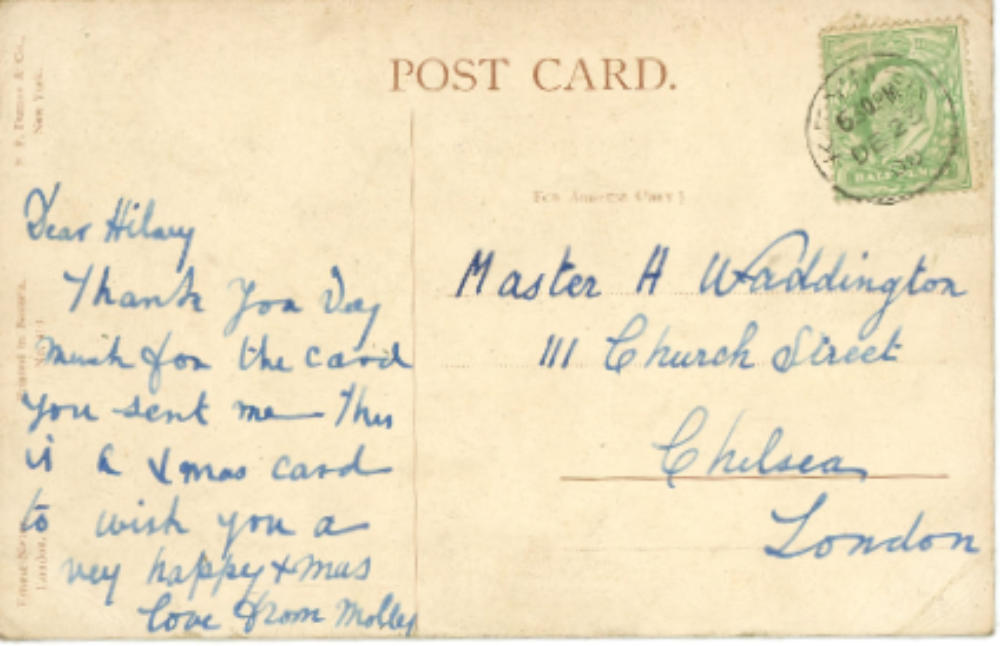 POST CARD.
Dear Hilary
Thank you vay
much for the card
you sent me This
is a Xmas card
to wish you a
vey happy Xmas
love from Molley
Master H Waddington
111 Church Street
Chelsea
London
New York.
London,
6 30 PM
DE 23
HALFPENNY